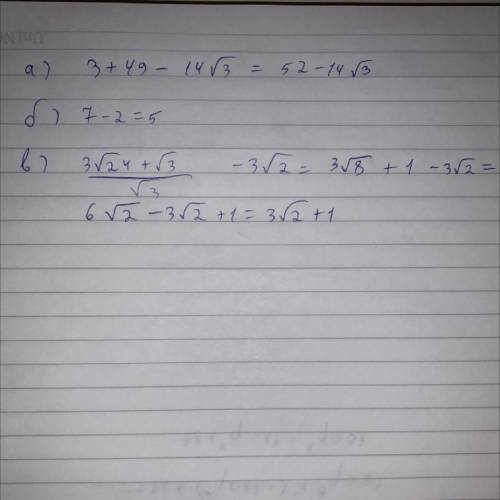 а) 3 + 49 - 14√3 = 52 - 14√3
б) 7 - 2 = 5
в) (3√24 + √3)/√3 - 3√2 = 3√8 + 1 - 3√2 =
6√2 - 3√2 + 1 = 3√2 + 1